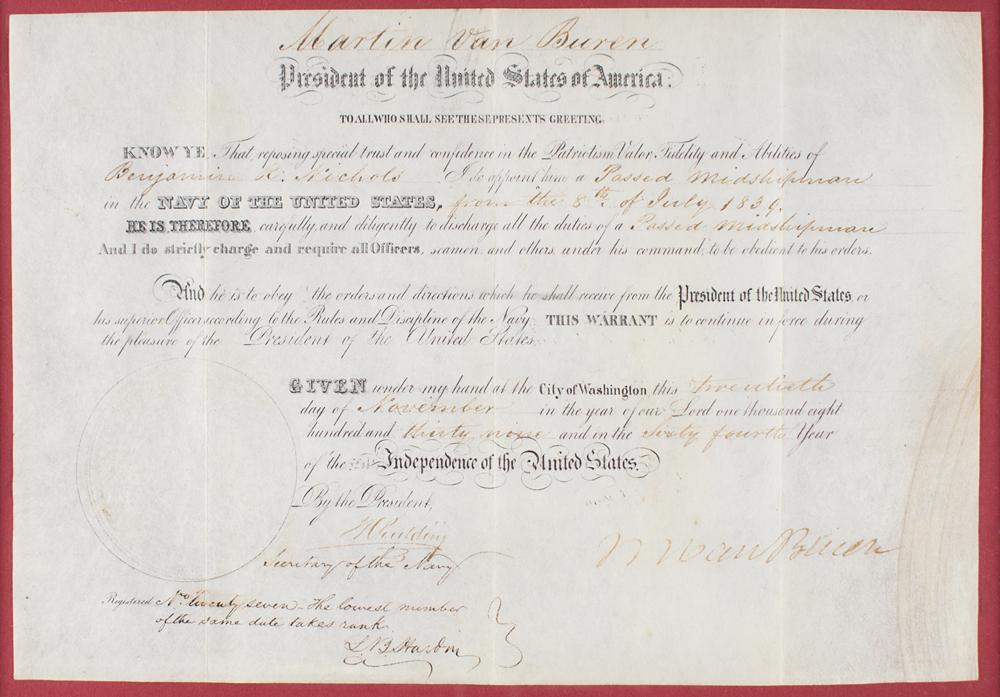 Martin Van Buren
President of the United States of America.
TO ALL WHO SHALL SEE THESE PRESENTS GREETING.
KNOW YE, That, reposing special trust and confidence in the Patriotism, Valor, Fidelity and Abilities of
Benjamin K. Nichols I do appoint him a Passed Midshipman
in the NAVY OF THE UNITED STATES, from the 8th of July 1839.
HE IS, THEREFORE, carefully, and diligently to discharge all the duties of a Passed Midshipman
And I do strictly charge and require all Officers, seamen and others, under his command, to be obedient to his orders.
And he is to obey the orders and directions which he shall receive from the President of the United States, or
his superior Officer, according to the Rules and Discipline of the Navy. THIS WARRANT is to continue in force during
the pleasure of the President of the United States.
GIVEN under my hand at the City of Washington this twentieth
day of November in the year of our Lord one thousand eight
hundred and thirty nine and in the Sixty fourth Year
of the Independence of the United States.
By the President,
JKPaulding
Secretary of the Navy
M Van Buren
Registered No Twenty seven - The lowest number
of the same date takes rank.
L. B. Hardin